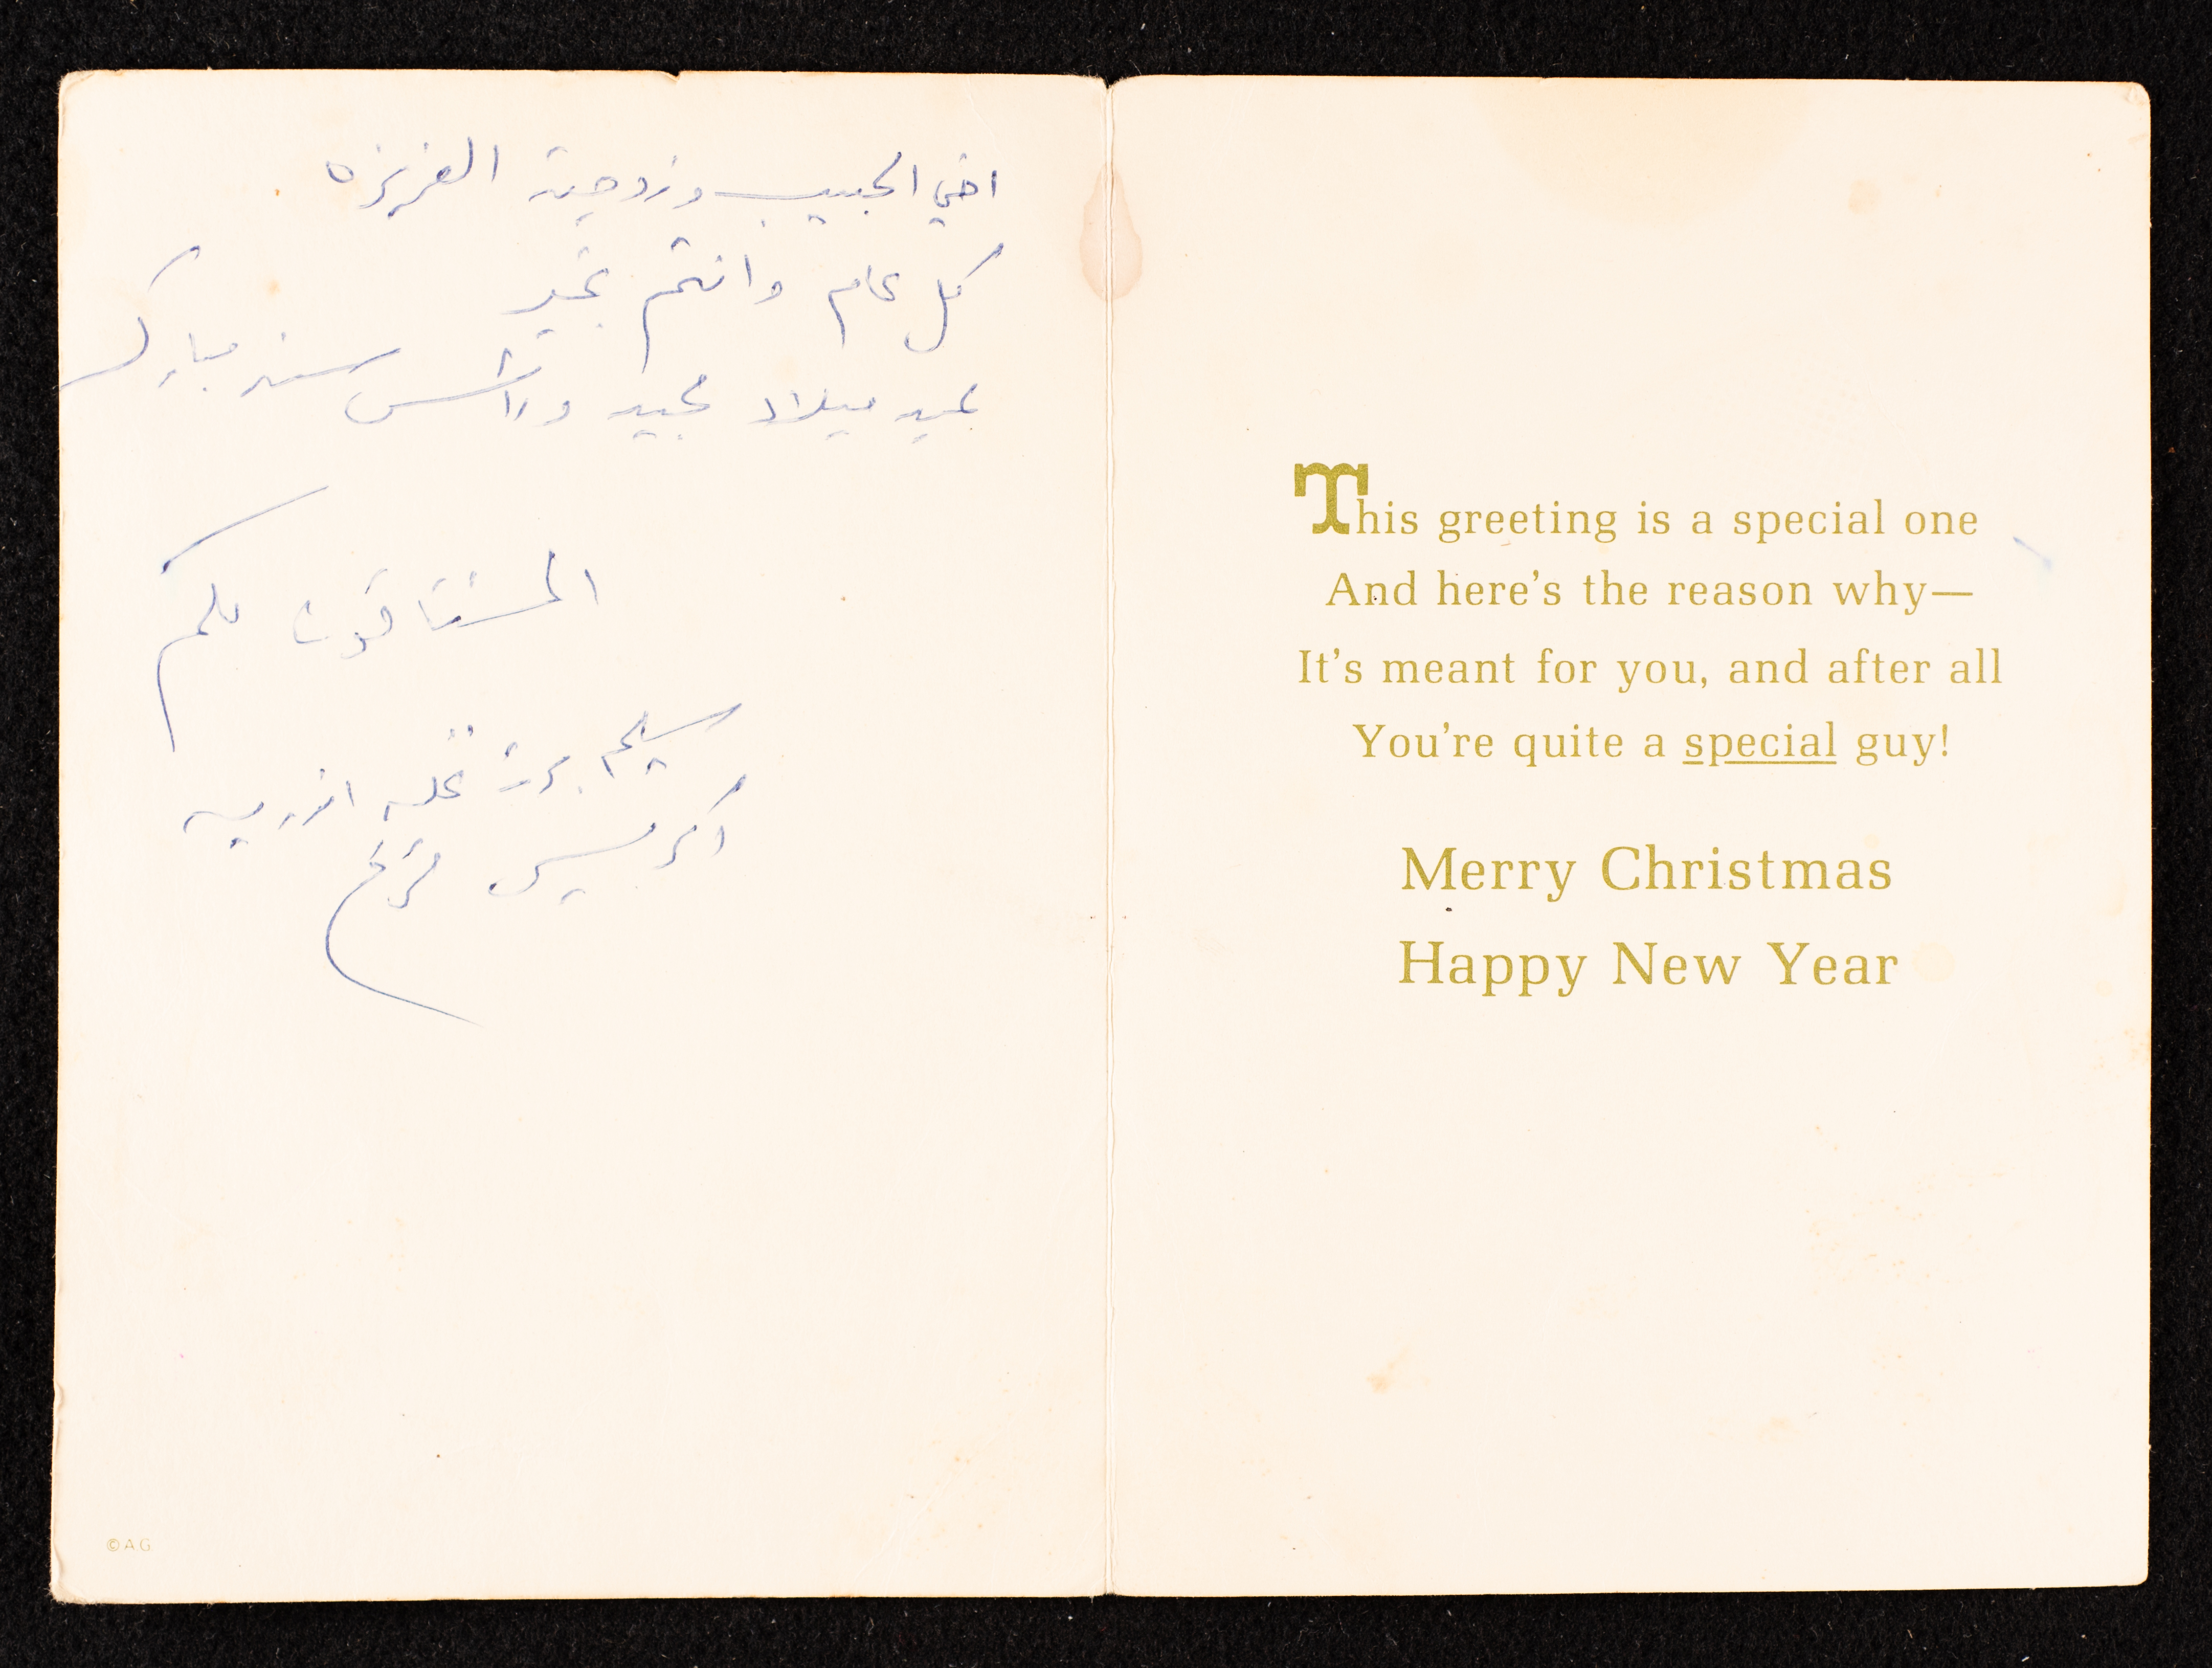 اخي الحبيب وزوجته العزيزه
كل عام وانتم بخير
عيد ميلاد مجيد وراس سنه مبارك
المشتاقون لكم
سليم
فرح
©AG
This greeting is a special one
And here's the reason why—
It's meant for you, and after all
You're quite a special guy!
Merry Christmas
Happy New Year